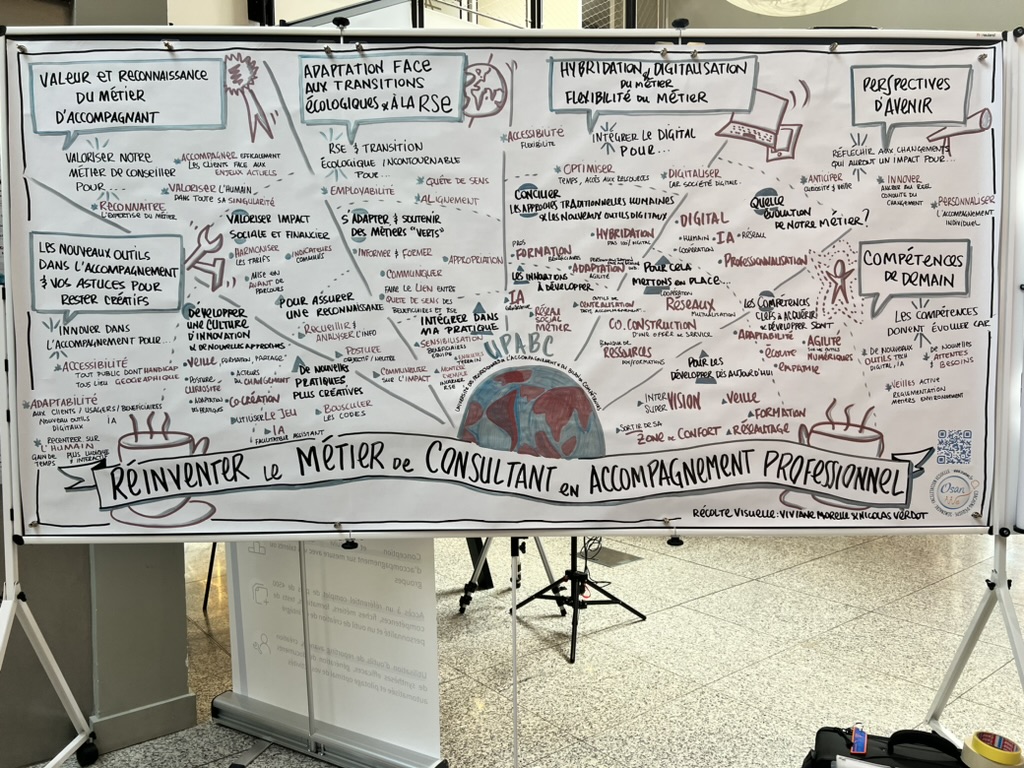 VALEUR ET RECONNAISSANCE
DU MÉTIER
D'ACCOMPAGNANT
VALORISER NOTRE
MÉTIER DE CONSEILLER
POUR...
RECONNAITRE
L'EXPERTISE DU MÉTIER
ACCOMPAGNER EFFICACEMENT
LES CLIENTS FACE AUX
ENJEUX ACTUELS
VALORISER L'HUMAIN
DANS TOUTE SA SINGULARITÉ
VALORISER IMPACT
SOCIALE ET FINANCIER
HARMONISER
LES TARIFS
INDICATEURS
COMMUNS
MISE EN
AVANT DE
PARCOURS
ADAPTATION FACE
AUX TRANSITIONS
ÉCOLOGIQUES & À LA RSE
RSE & TRANSITION
ÉCOLOGIQUE INCONTOURNABLE
POUR...
EMPLOYABILITÉ
QUÊTE DE SENS
ALIGNEMENT
S'ADAPTER & SOUTENIR
DES MÉTIERS "VERTS"
INFORMER & FORMER
APPROPRIATION
COMMUNIQUER
FAIRE LE LIEN ENTRE
QUÊTE DE SENS DES
BÉNÉFICIAIRES ET RSE
INTÉGRER DANS
MA PRATIQUE
SENSIBILISATION
BÉNÉFICIAIRES
ÉQUIPE
COMMUNIQUER
SUR L'IMPACT
HYBRIDATION & DIGITALISATION
DU MÉTIER
FLEXIBILITÉ DU MÉTIER
ACCESSIBILITÉ
FLEXIBILITÉ
INTÉGRER LE DIGITAL
POUR...
OPTIMISER
TEMPS, ACCÈS AUX RESSOURCES
DIGITALISER
CAR SOCIÉTÉ DIGITALE
CONCILIER
LES APPROCHES TRADITIONNELLES HUMAINES
& LES NOUVEAUX OUTILS DIGITAUX
HYBRIDATION
FORMATION
ADAPTATION
AGILITÉ
LES INNOVATIONS
À DÉVELOPPER
IA
RÉSEAU
SOCIAL
MÉTIER
POUR CELA
METTONS EN PLACE...
OUTILS DE
CENTRALISATION
COOPÉRATION
RESEAUX
CO.CONSTRUCTION
D'UNE OFFRE DE SERVICE
BANQUE DE
RESSOURCES
POUR LES
DÉVELOPPER DÈS AUJOURD'HUI
INTER
SUPER VISION
VEILLE
FORMATION
SORTIR DE SA
ZONE DE CONFORT & RÉSEAUTAGE
PERSPECTIVES
D'AVENIR
RÉFLÉCHIR AUX CHANGEMENTS
QUI AURONT UN IMPACT POUR...
ANTICIPER
CURIOSITÉ & VEILLE
INNOVER
CONDUITE DU
CHANGEMENT
PERSONNALISER
L'ACCOMPAGNEMENT
INDIVIDUEL
QUELLE
ÉVOLUTION
DE NOTRE MÉTIER?
DIGITAL
HUMAIN
IA
RÉSEAU
COOPÉRATION
PROFESSIONNALISATION
LES NOUVEAUX OUTILS
DANS L'ACCOMPAGNEMENT
& VOS ASTUCES POUR
RESTER CRÉATIFS
INNOVER DANS
L'ACCOMPAGNEMENT POUR...
ACCESSIBILITÉ
TOUT PUBLIC DONT HANDICAP
TOUS LIEU GÉOGRAPHIQUE
ADAPTABILITÉ
AUX CLIENTS / USAGERS / BÉNÉFICIAIRES
NOUVEAUX OUTILS
DIGITAUX
IA
RECENTRER SUR
L'HUMAIN
GAIN DE
TEMPS
DÉVELOPPER
UNE CULTURE
D'INNOVATION
& DE NOUVELLES APPROCHES
VEILLE FORMATION, PARTAGE
POSTURE
CURIOSITÉ
ACTEURS
DU CHANGEMENT
ADAPTATION
DES PRATIQUES
CO-CRÉATION
UTILISER LE JEU
IA
FACILITATEUR ASSISTANT
POUR ASSURER
UNE RECONNAISSANCE
RECUEILLIR &
ANALYSER L'INFO
POSTURE
DE NOUVELLES
PRATIQUES
PLUS CRÉATIVES
BOUSCULER
LES CODES
COMPÉTENCES
DE DEMAIN
LES COMPÉTENCES
DOIVENT ÉVOLUER CAR
DE NOUVEAUX
OUTILS TECH
DIGITAL, IA
DE NOUVELLES
ATTENTES
BESOINS
VEILLES ACTIVE
RÉGLEMENTATION
MÉTIERS ENVIRONNEMENT
LES COMPÉTENCES
CLEFS À ACQUÉRIR
& DÉVELOPPER SONT
ADAPTABILITÉ
AGILITÉ
OUTILS
NUMÉRIQUES
ÉCOUTE
EMPATHIE
UPABC
RÉINVENTER LE MÉTIER DE CONSULTANT EN ACCOMPAGNEMENT PROFESSIONNEL
RÉCOLTE VISUELLE: VIVIANE MORELLE & NICOLAS VERDOT